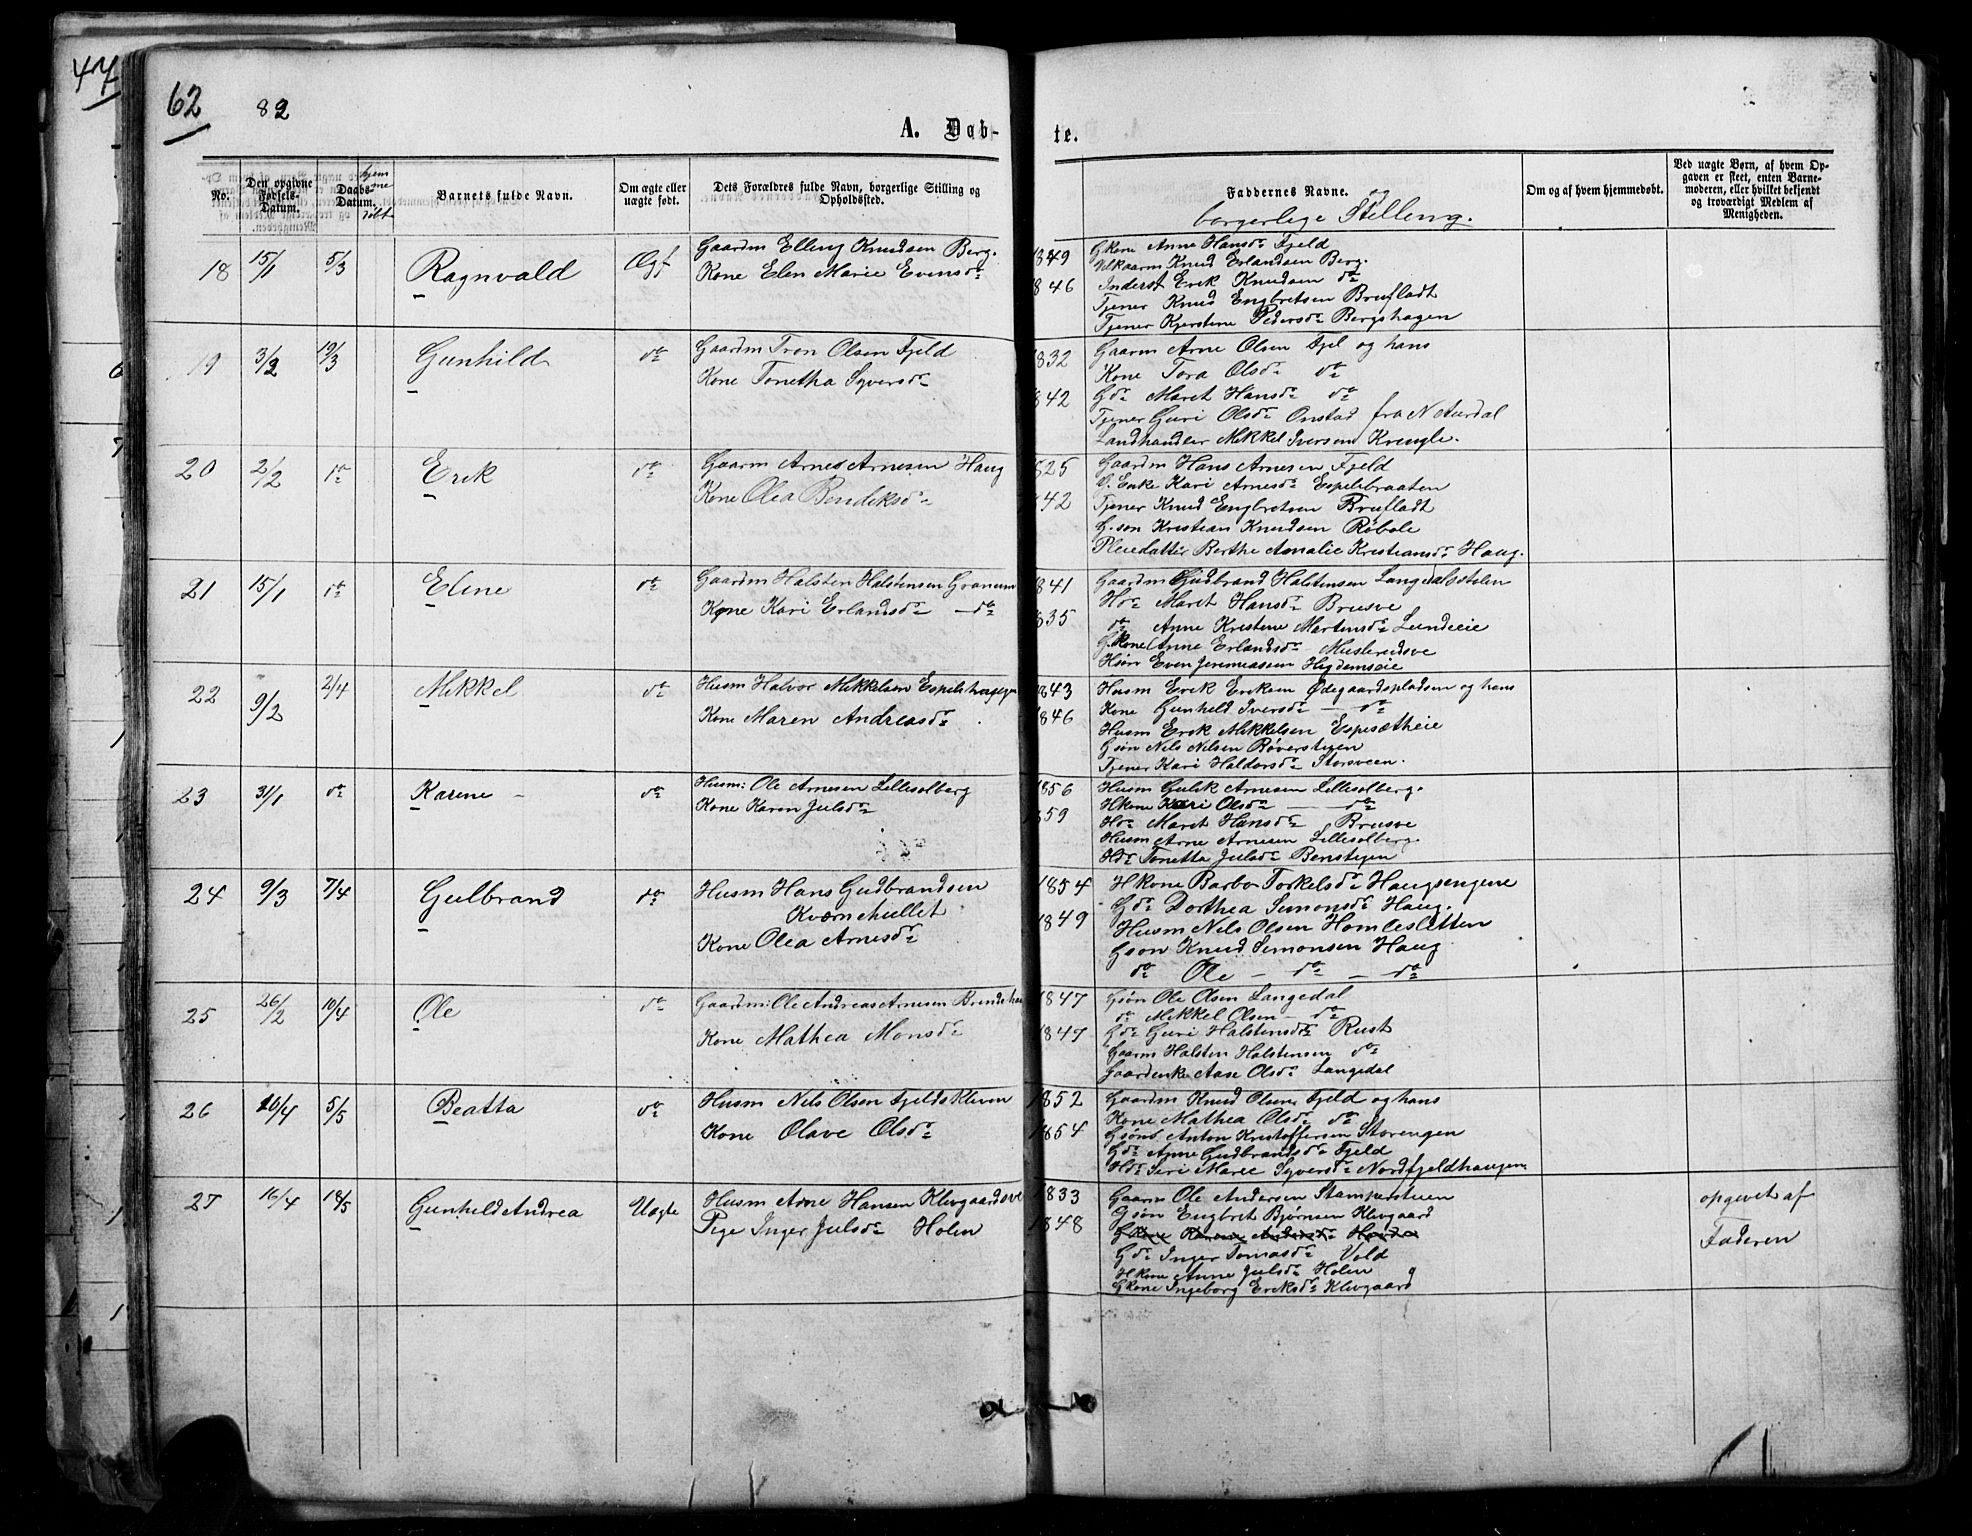 47
62
82
A. Døb-
te.
No.
Den opgivne Fødsels-Datum.
Daabs-Datum.
hjem me døbt
Barnets fulde Navn.
Om ægte eller uægte født.
Dets Forældres fulde Navn, borgerlige Stilling og Opholdssted.
Faddernes Navne.
og
borgerlige Stilling.
Om og af hvem hjemmedøbt.
Ved uægte Børn, af hvem Opgaven er skeet, enten Barnemoderen, eller hvilket bekjendt og troværdigt Medlem af Menigheden.
18 15/1 5/3 Ragnvald Ægt
Gaardm Elling Knudsen Berg.
Kone Elen Marie Evensdr
1849
1846
Gkone Anne Hansdr Fjeld
Vilkaarm Knud Erlandsen Berg.
Inderst Erik Knudsen do
Tjener Knud Engbretsen Brufladt
Tjener Kjerstine Pedersdr Bergshagen
19 3/2 19/3 Gunhild do
Gaardm Tron Olsen Fjeld
Kone Tonetha Syversdr
1832
1842
Gaarm Arne Olsen Fjel og hans
Kone Tora Olsdr do
Gdr Maret Hansdr do
Tjener Guri Olsdr Onstad fra N Aurdal
Landhandler Mikkel Iversen Krengle.
20 2/2 do Erik do
Gaarm Arne Arnesen Haug
Kone Olea Bendiksdr
1825
1842
Gaardm Hans Arnesen Fjeld
G. Enke Kari Arnesdr Espelibraaten
Tjener Knud Engbretsen Brufladt
G.søn Kristian Knudsen Røbole
Pleiedatter Berthe Amalie Kristiansdr Haug.
21 15/1 do Eline do
Gaardm Halsten Halstensen Granum
Kone Kari Erlandsdr — do
1841
1835
Gaardm Gudbrand Halstensen Langedalsstølen
Hdr Maret Hansdr Brusve
do Anne Kristine Martensdr Lundeie
G.Kone Anne Erlandsdr Muslerudsve
Hsøn Even Jeremiassen Høgdemseie
22 9/2 2/4 Mikkel do
Husm Halvor Mikkelsen Espelihaugen
Kone Maren Andreasdr
1843
1846
Husm Erik Eriksen Ødegaardspladsen og hans
Kone Gunhild Iversdr — do
Husm Erik Mikkelsen Espesætheie
Gsøn Nils Nilsen Røverstigen
Tjener Kari Haldorsdr Storsveen.
23 31/1 do Karine - do
Husm: Ole Arnesen Lillesolberg
Kone Karen Julsdr
1856
1859
Husm Gulik Arnesen Lillesolberg.
Hkone Kari Olsdr — do
Hdr Maret Hansdr Brusve
Husm Arne Arnesen Lillesolberg.
Hdr Tonetta Julsdr Benstigen
24 9/3 7/4 Gulbrand do
Husm Hans Gudbrandsen
Kværnehullet
Kone Olea Arnesdr
1854
1849
Hkone Barbo Torkelsdr Haugsengene
Gdr Dorthea Simonsdr Haug.
Husm Nils Olsen Homlesletten
Gsøn Knud Simonsen Haug
do Ole — do — do
25 26/2 10/4 Ole do
Gaardm: Ole Andreas Arnesen Brendehau
Kone Mathea Monsdr
1847
1847
Gsøn Ole Olsen Langedal
do Mikkel Olsen — do
Gdr Guri Halstensdr Rust
Gaarm Halsten Halstensen do
Gaardenke Aase Olsdr Langedal
26 10/4 5/5 Beatta do
Husm Nils Olsen Fjelds Kleven
Kone Olave Olsdr
1852
1854
Gaardm Knud Olsen Fjeld og hans
Kone Mathea Olsdr do
Gsøn Anton Kristoffersen Storengen
Gdr Anne Gudbrandsdr Fjeld
Hdr Siri Marie Syversdr Nordfjeldhaugen
27 16/4 18/5 Gunhild Andrea Uægte
Husm Arne Hansen Klevgaardsve
Pige Inger Julsdr Holen
1833
1848
Gaarm Ole Andersen Stamperstuen
Gsøn Engbret Bjørnsen Klevgaard
Gdr Inger Tomasdr Vold
Hkone Anne Julsdr Holen
Gkone Ingeborg Eriksdr Klevgaard
opgevet af
Faderen